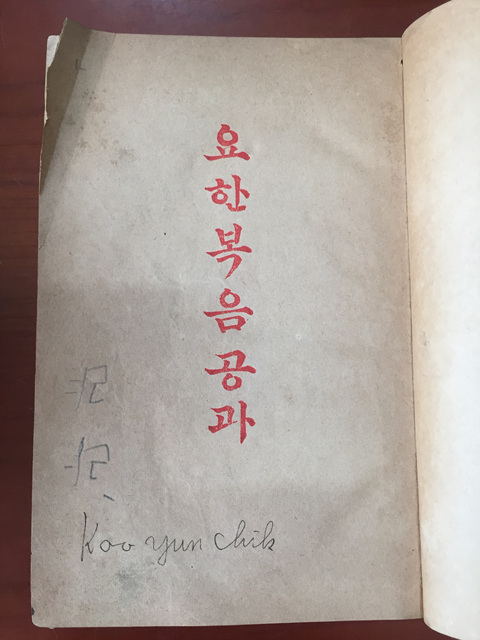 요한복음공과
Koo yun chik